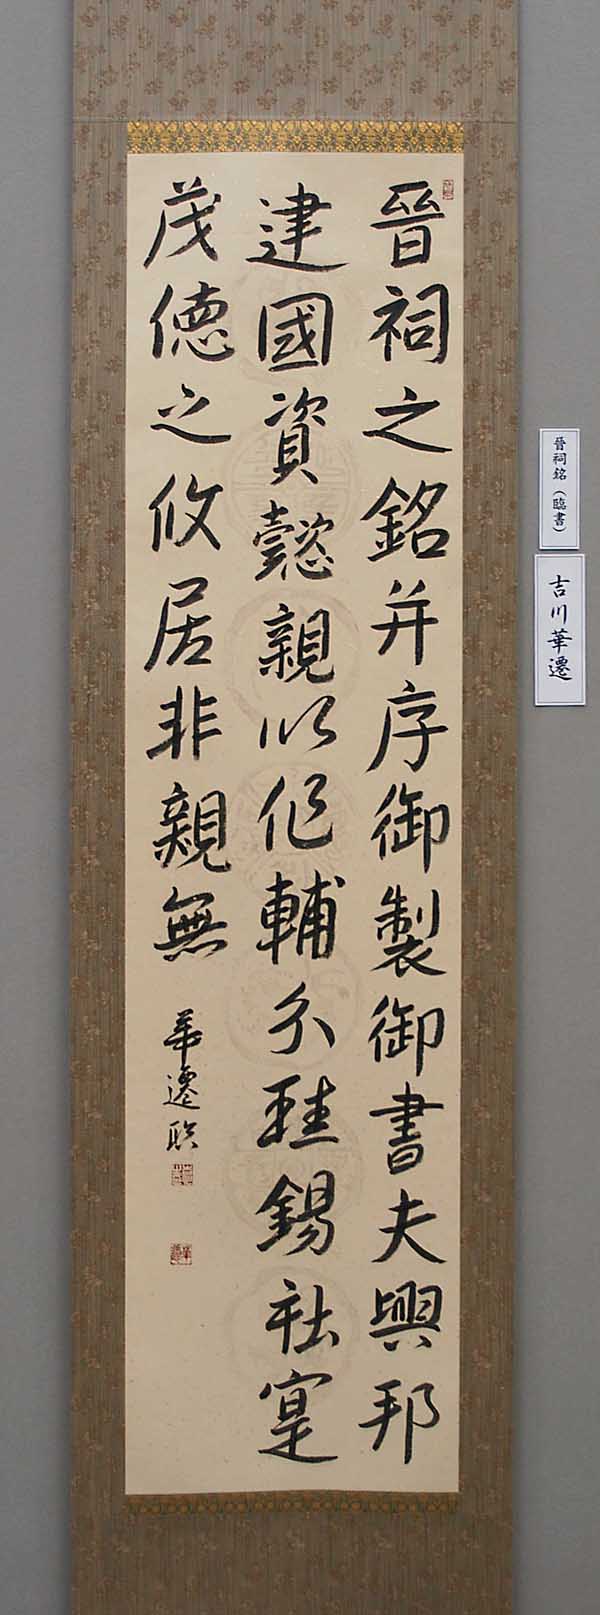 晉祠之銘并序御製御書夫興邦
建國資懿親以作輔分珪錫社寔
茂德之攸居非親無
華遷臨
晉祠銘（臨書）
吉川華遷